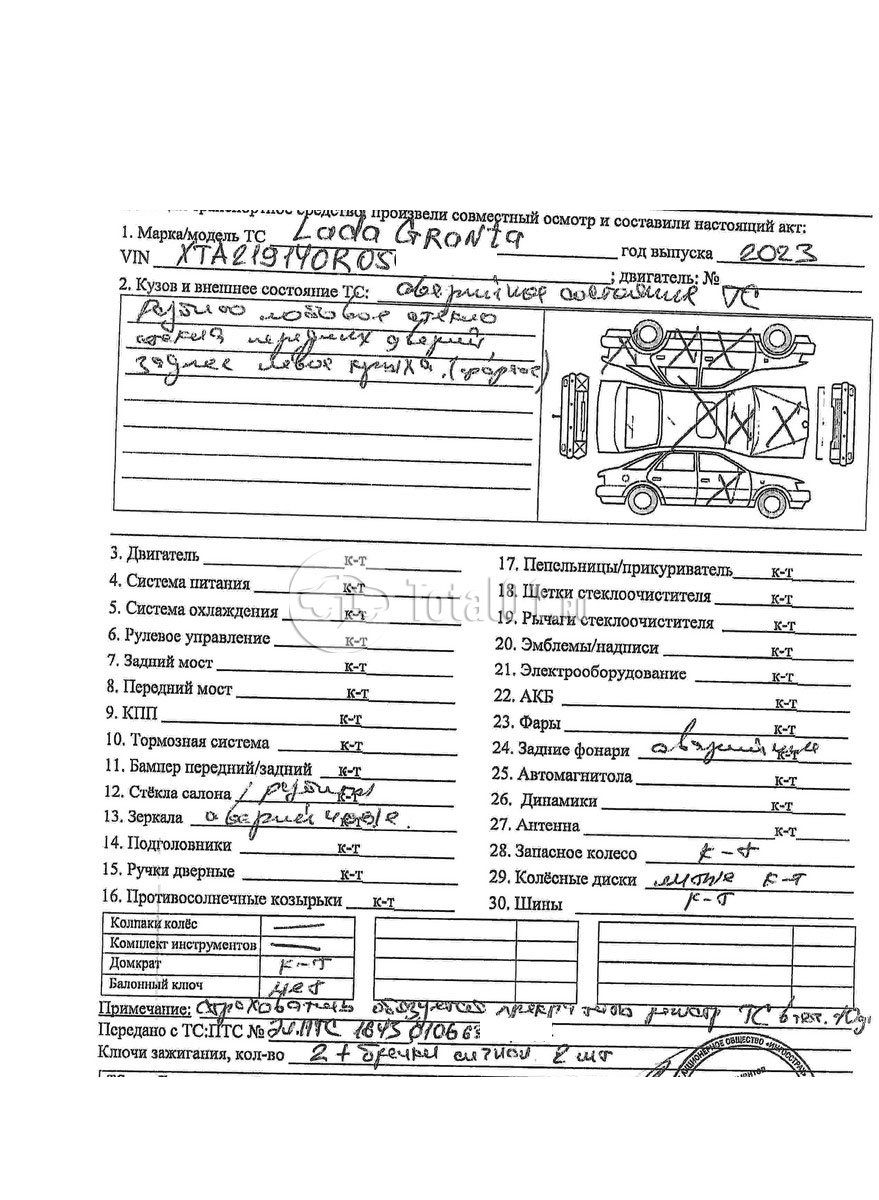 транспортное средство, произвели совместный осмотр и составили настоящий акт:
1. Марка/модель ТС Lada GRANTA
VIN XTA219140R05 год выпуска 2023
; двигатель: №
2. Кузов и внешнее состояние ТС: аварийное состояние ТС
Разбито лобовое стекло
стекла передних дверей,
заднее левое крыла. (форточ)
3. Двигатель к-т
4. Система питания к-т
5. Система охлаждения к-т
6. Рулевое управление к-т
7. Задний мост к-т
8. Передний мост к-т
9. КПП к-т
10. Тормозная система к-т
11. Бампер передний/задний к-т
12. Стёкла салона к-т разбиты
13. Зеркала к-т аварийные.
14. Подголовники к-т
15. Ручки дверные к-т
16. Противосолнечные козырьки к-т
17. Пепельницы/прикуриватель к-т
18. Щетки стеклоочистителя к-т
19. Рычаги стеклоочистителя к-т
20. Эмблемы/надписи к-т
21. Электрооборудование к-т
22. АКБ к-т
23. Фары к-т
24. Задние фонари к-т аварийные
25. Автомагнитола к-т
26. Динамики к-т
27. Антенна к-т
28. Запасное колесо к-т
29. Колёсные диски литые к-т
30. Шины к-т
Колпаки колёс —
Комплект инструментов —
Домкрат к-т
Балонный ключ нет
Примечание: Страхователь обязуется прекратить регистр ТС в теч. 10
Передано с ТС:ПТС № Эл.ПТС 1643010663
Ключи зажигания, кол-во 2 + брелки сигнал. 2 шт
АКЦИОНЕРНОЕ ОБЩЕСТВО «ИНГОССТРАХ
Total01.ru